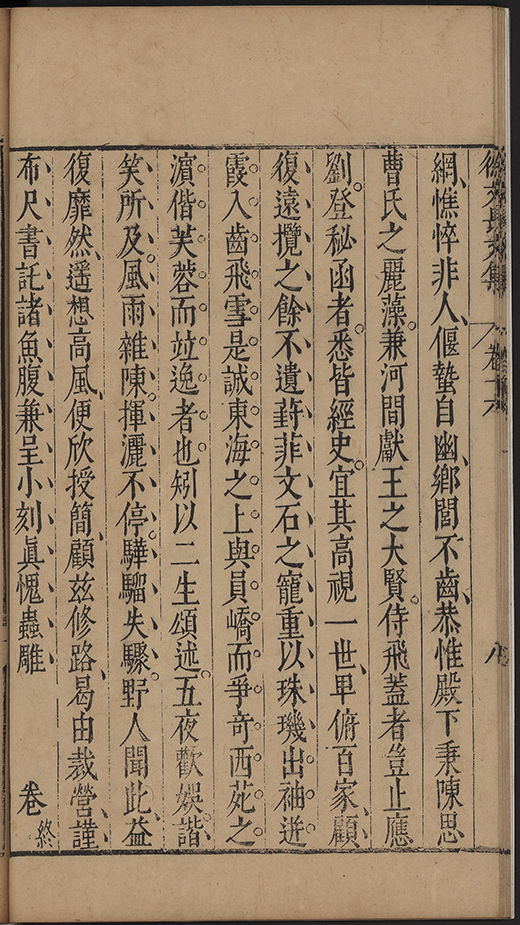 徐文長文集 卷十六 八
網、憔悴非人、偃蟄自幽、鄉閭不齒、恭惟殿下秉陳思
曹氏之麗藻。兼河間獻王之大賢。侍飛蓋者豈止應
劉。登秘函者。悉皆經史。宜其高視一世、卑俯百家、顧
復遠攬之餘、不遺葑菲文石之寵、重以珠璣。出袖迸
霞。入齒飛雪。是誠東海之上與員嶠而爭奇。西苑之
濵偕芙蓉而竝逸者也。矧以二生頌述。五夜歡娛、諧
笑所及。風雨雜陳。揮灑不停。驊騮失驟。野人聞此、益
復靡然、遥想高風、便欣授簡、顧兹修路、曷由裁營、謹
布尺書託諸魚腹兼呈小刻眞愧蟲雕
卷終